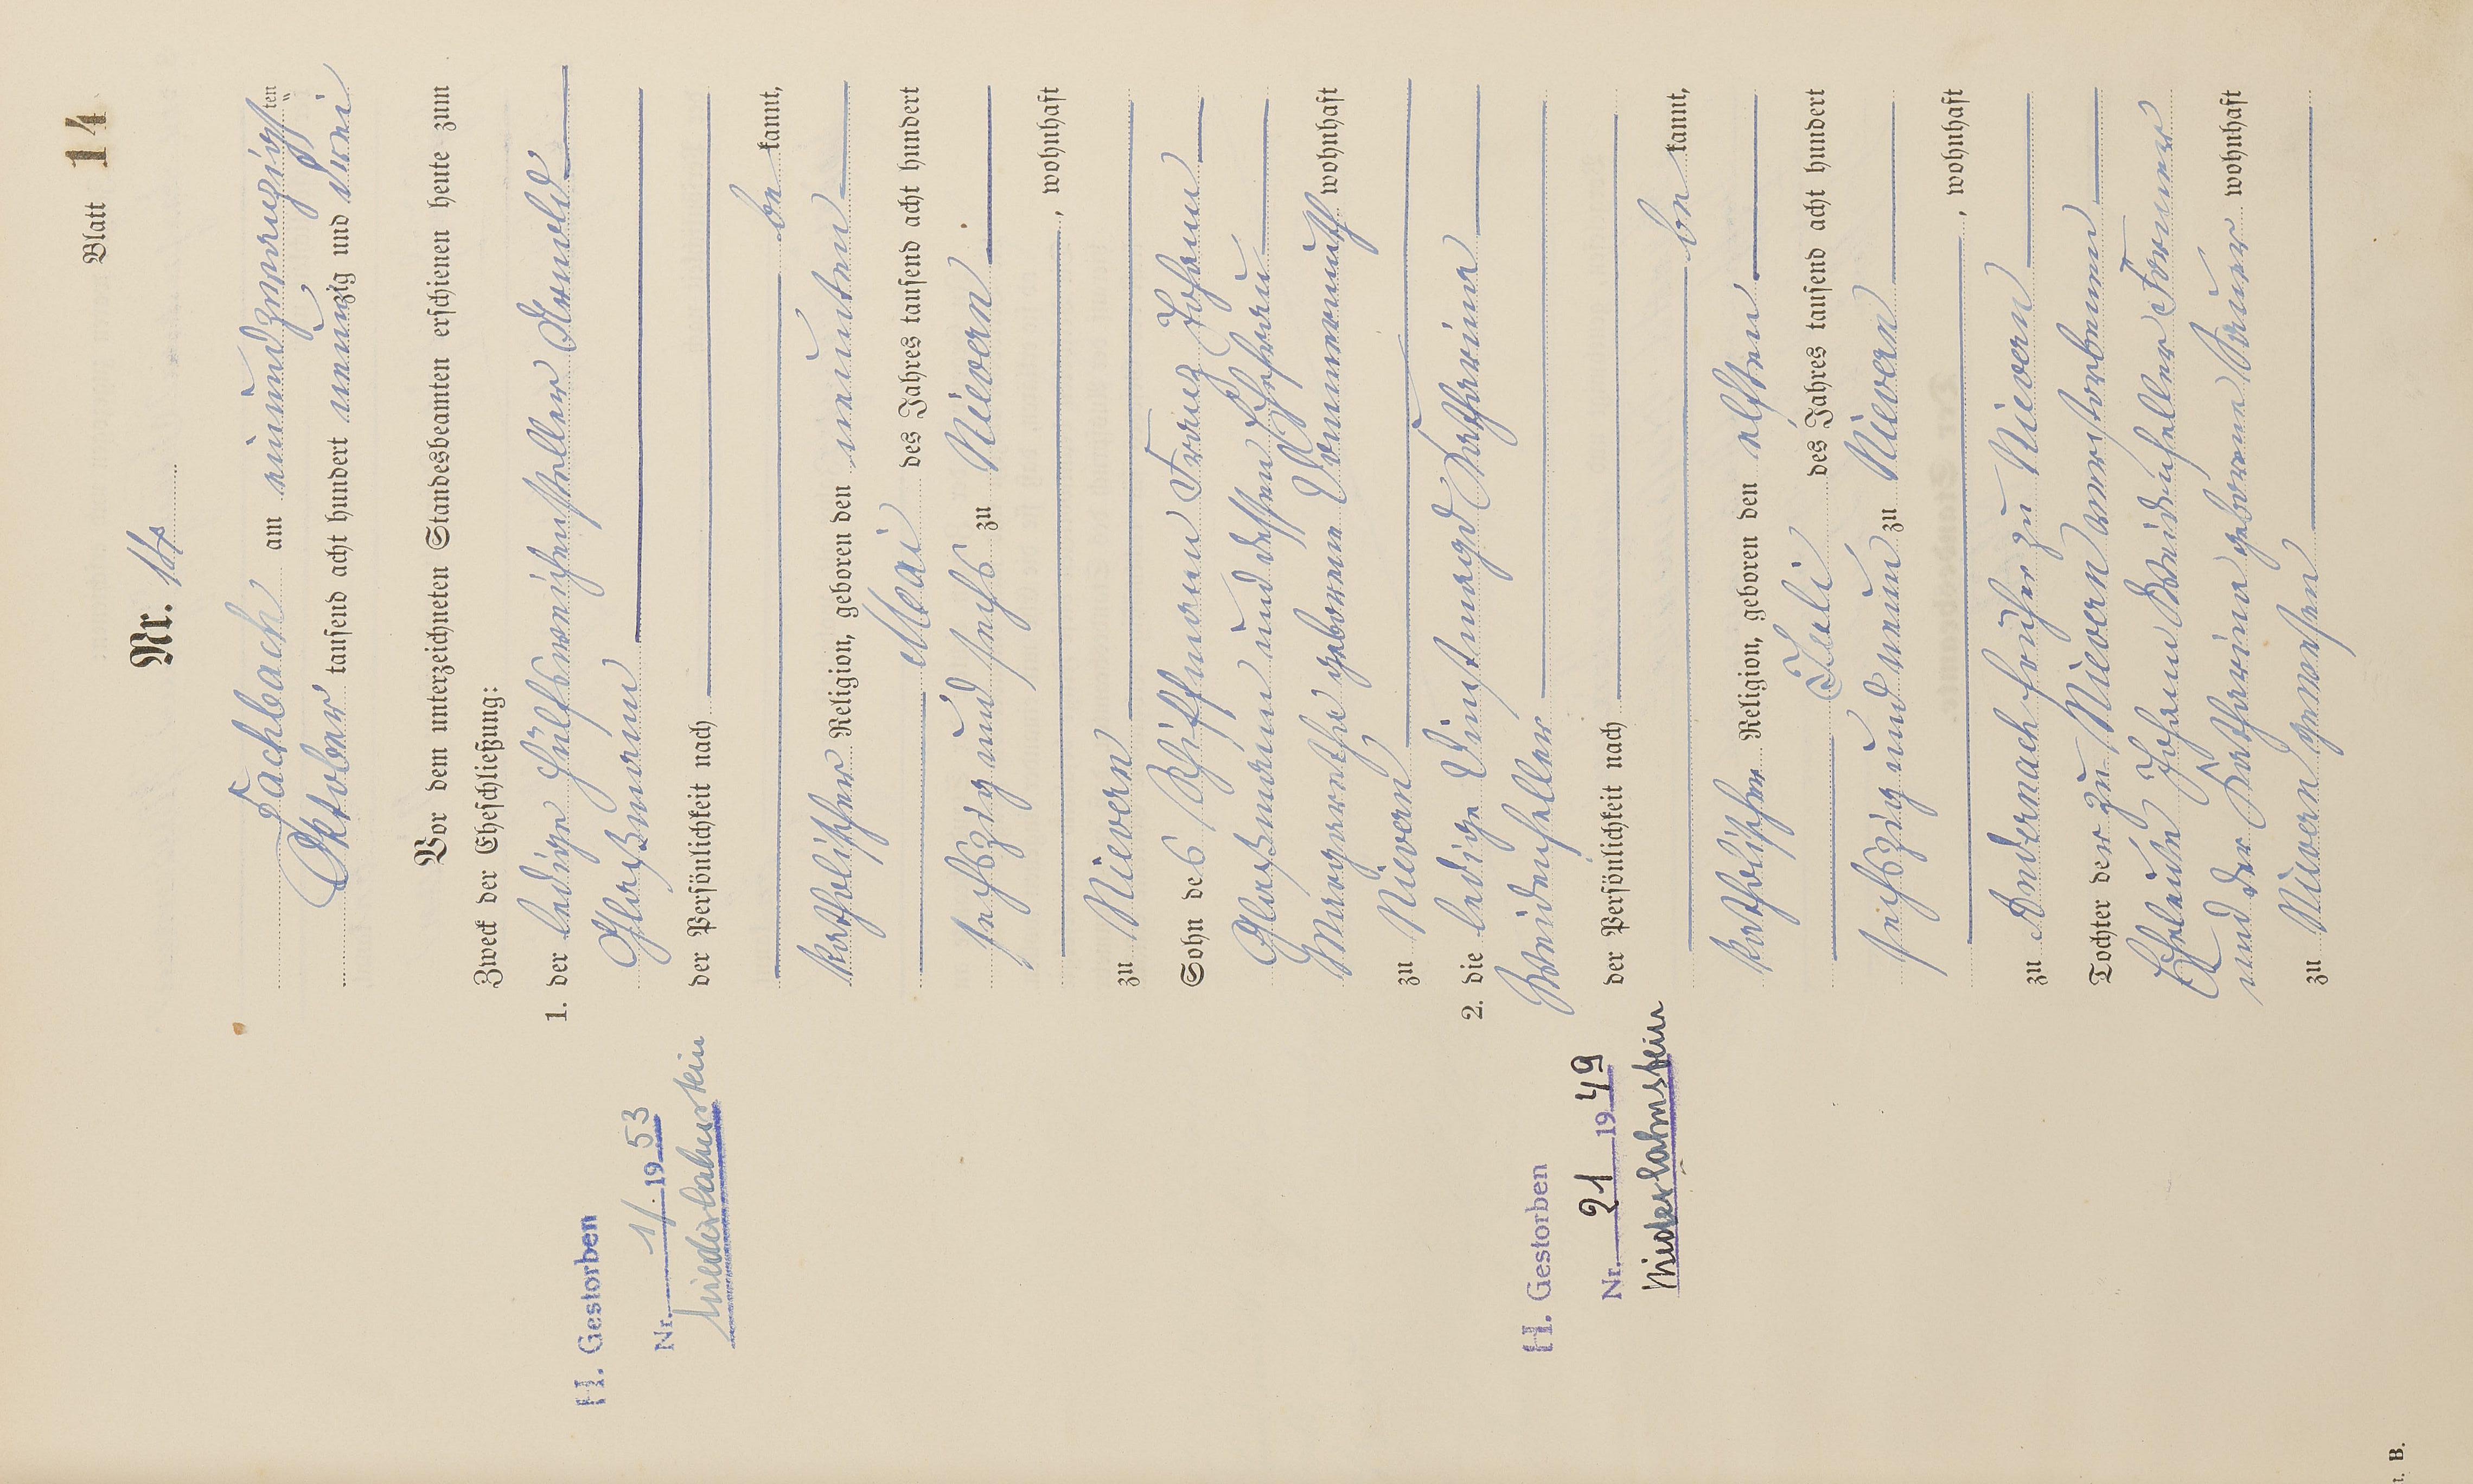 Blatt 14
Nr. 14
Fachbach am einundzwanzigsten
Oktober tausend acht hundert neunzig und drei
Vor dem unterzeichneten Standesbeamten erschienen heute zum
Zweck der Eheschließung:
1. der ledige Hülfsweichensteller Arnold
der Persönlichkeit nach
be kannt,
katholischer Religion, geboren den neunten
Mai des Jahres tausend acht hundert
sechszig und sechs zu Nievern
, wohnhaft
zu Nievern
Sohn des Schiffmann Franz Johann
und dessen Ehefrau
Margarethe geborene wohnhaft
zu Nievern
2. die ledige Dienstmagd Katharina
Weidenfeller
der Persönlichkeit nach
be kannt,
katholischer Religion, geboren den elften
Juli des Jahres tausend acht hundert
sechszig und neun zu Nievern
, wohnhaft
zu Andernach früher zu Nievern
Tochter der zu Nievern verstorbenen
Eheleute Johann Weidenfeller
und der Katharina geborene wohnhaft
zu Nievern gewesen
H. Gestorben
Nr. 1/ 1953
Niederlahnstein
H. Gestorben
Nr. 21 1949
Niederlahnstein
t. B.